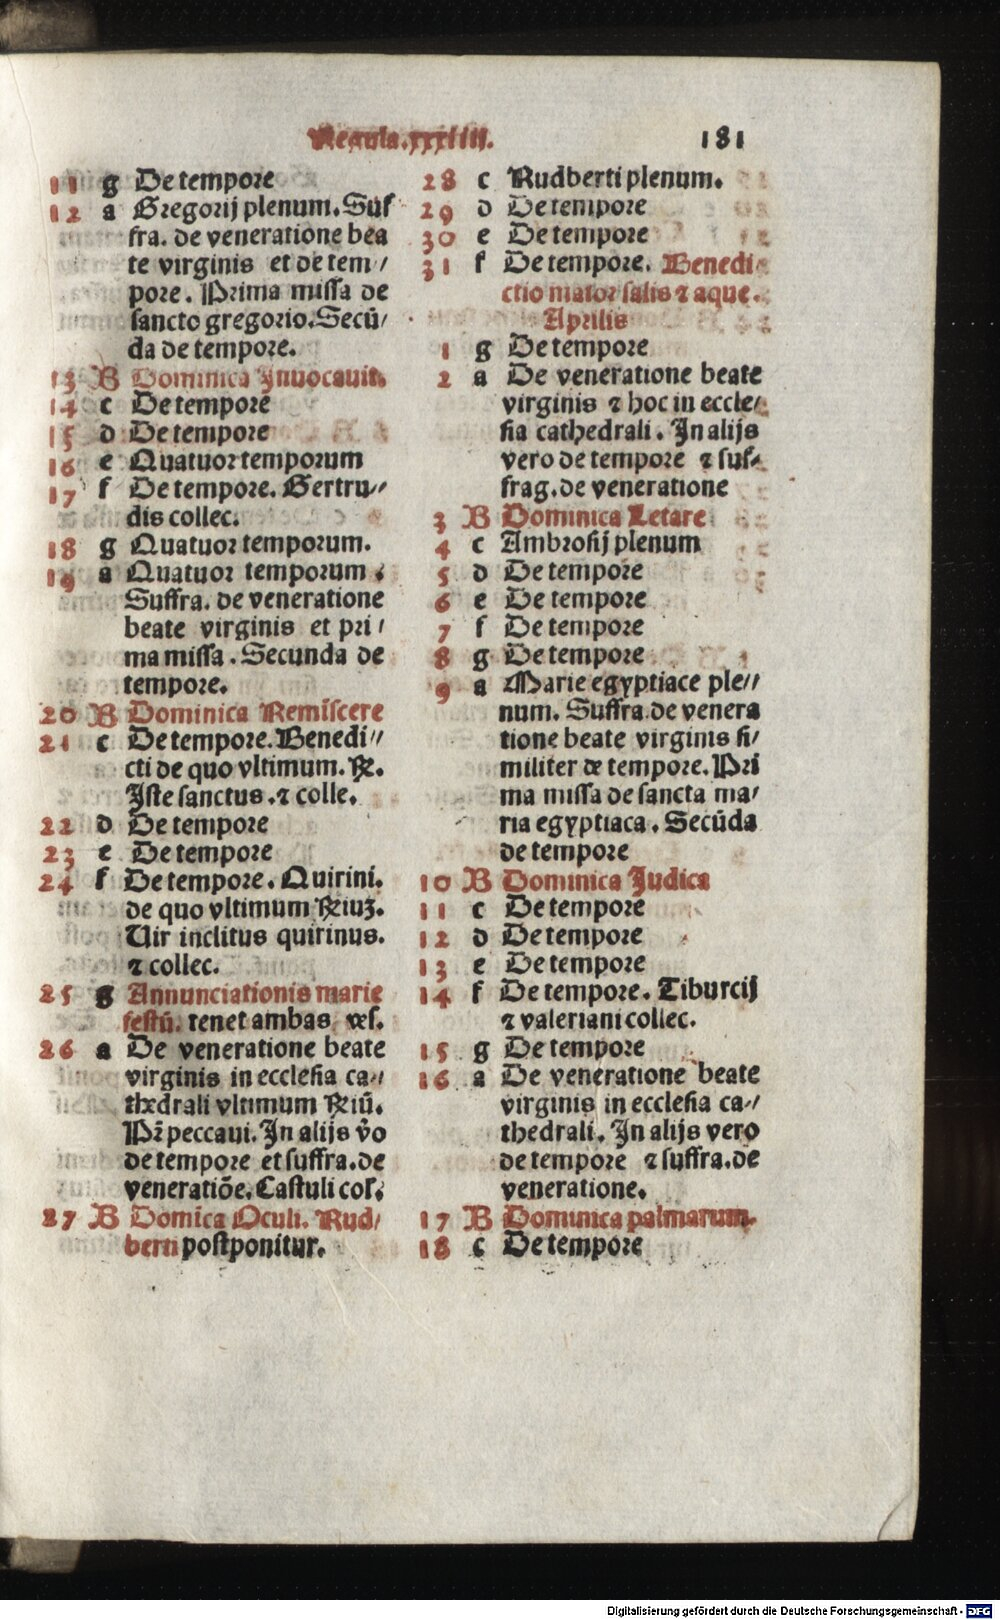 Regula.xxxiiii. 181
11 g De tempore
12 a Gregorij plenum. Suf
fra. de veneratione bea
te virginis et de tem/
pore. Prima missa de
sancto gregorio. Secū/
da de tempore.
13 B Dominica Inuocauit.
14 c De tempore
15 d De tempore
16 e Quatuor temporum
17 f De tempore. Gertru//
dis collec.
18 g Quatuor temporum.
19 a Quatuor temporum.
Suffra. de veneratione
beate virginis et pri/
ma missa. Secunda de
tempore.
20 B Dominica Remīscere
21 c De tempore. Benedi//
cti de quo vltimum. ℟.
Iste sanctus. ⁊ colle.
22 d De tempore
23 e De tempore
24 f De tempore. Quirini.
de quo vltimum ℟iuꝫ.
Uir inclitus quirinus.
⁊ collec.
25 g Annunciationis marie
festū. tenet ambas ves.
26 a De veneratione beate
virginis in ecclesia ca//
thedrali vltimum ℟iū.
Pr̄ peccaui. In alijs v̄o
de tempore et suffra. de
veneratiōe. Castuli col.
27 B Domīca Oculi. Rud/
berti postponitur.
28 c Rudberti plenum.
29 d De tempore
30 e De tempore
31 f De tempore. Benedi
ctio maior salis ⁊ aque.
Aprilis
1 g De tempore
2 a De veneratione beate
virginis ⁊ hoc in eccle/
sia cathedrali. In alijs
vero de tempore ⁊ suf/
frag. de veneratione
3 B Dominica Letare
4 c Ambrosij plenum
5 d De tempore
6 e De tempore
7 f De tempore
8 g De tempore
9 a Marie egyptiace ple//
num. Suffra. de venera
tione beate virginis si/
militer de tempore. Pri
ma missa de sancta ma/
ria egyptiaca. Secūda
de tempore
10 B Dominica Judica
11 c De tempore
12 d De tempore
13 e De tempore
14 f De tempore. Tiburcij
⁊ valeriani collec.
15 g De tempore
16 a De veneratione beate
virginis in ecclesia ca//
thedrali. In alijs vero
de tempore ⁊ suffra. de
veneratione.
17 B Dominica palmarum.
18 c De tempore
Digitalisierung gefördert durch die Deutsche Forschungsgemeinschaft - DFG